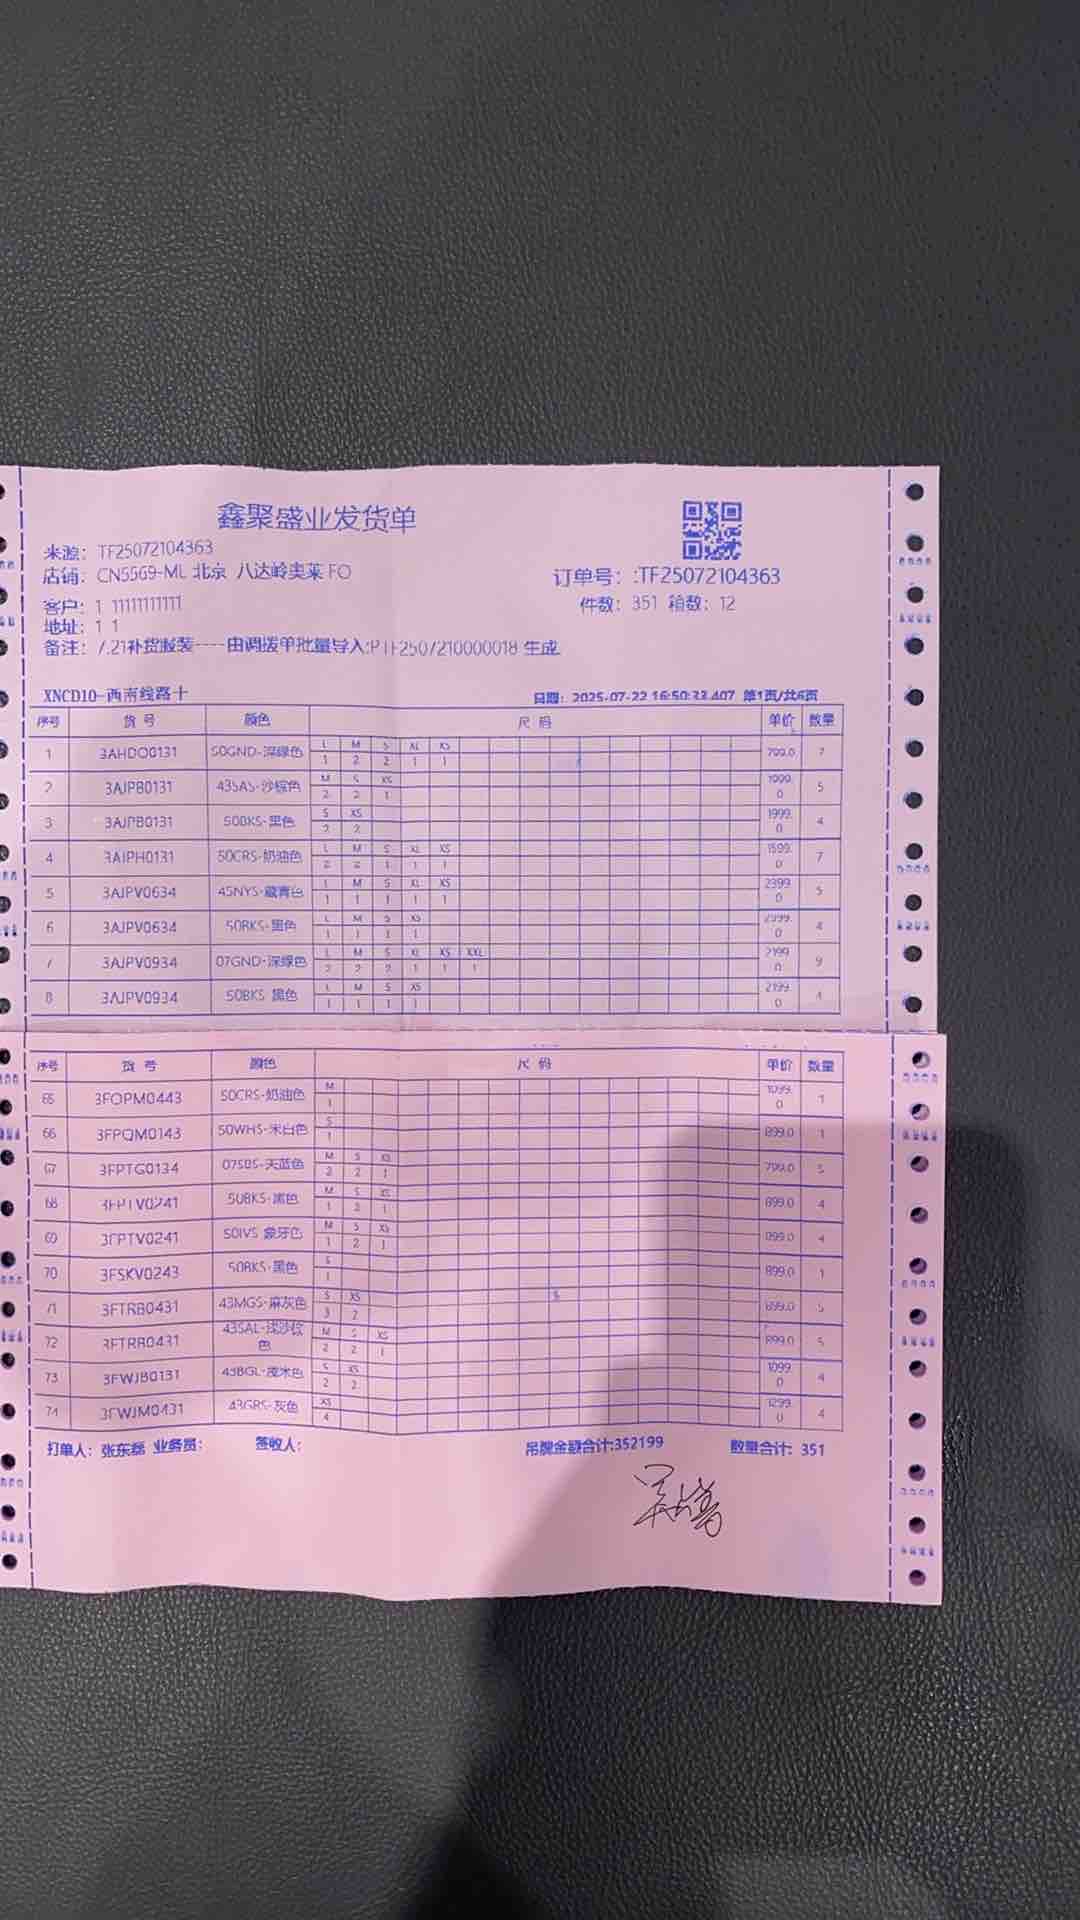 鑫聚盛业发货单
来源: TF25072104363
店铺: CN5569-ML 北京 八达岭奥莱 FO
订单号: :TF25072104363
客户: 1 11111111111
件数: 351 箱数: 12
地址: 1 1
备注: 7.21补货服装----由调拨单批量导入:PTF2507210000018 生成
XNCD10-西南线路十
日期: 2025-07-22 16:50:33.407 第1页/共6页
序号 货号 颜色 尺码 单价 数量
1 3AHDO0131 50GND-深绿色 L M S XL XS 799.0 7
1 2 2 1 1
2 3AJPB0131 43SAS-沙棕色 M S XS 1999.0 5
2 2 1
3 3AJPB0131 50BKS-黑色 S XS 1999.0 4
2 2
4 3AJPH0131 50CRS-奶油色 L M S XL XS 1599.0 7
2 2 1 1 1
5 3AJPV0634 45NYS-藏青色 L M S XL XS 2399.0 5
1 1 1 1 1
6 3AJPV0634 50BKS-黑色 L M S XS 4
1 1 1 1
7 3AJPV0934 07GND-深绿色 L M S XL XS XXL 2199.0 9
2 2 2 1 1 1
8 3AJPV0934 50BKS-黑色 L M S XS 2199.0 4
1 1 1 1
序号 货号 颜色 尺码 单价 数量
65 3FOPM0443 50CRS-奶油色 M 1099.0 1
1
66 3FPQM0143 50WHS-米白色 S 899.0 1
1
67 3FPTG0134 07SBS-天蓝色 M S XS 799.0 5
2 2 1
68 3FPTV0241 50BKS-黑色 M S XS 899.0 4
1 2 1
69 3FPTV0241 50IVS-象牙色 M S XS 899.0 4
1 2 1
70 3FSKV0243 50BKS-黑色 S 899.0 1
1
71 3FTRB0431 43MGS-麻灰色 S XS 899.0 5
3 2
72 3FTRB0431 43SAL-浅沙棕色 M S XS 899.0 5
2 2 1
73 3FWJB0131 43BGL-浅米色 S XS 1099.0 4
2 2
74 3FWJM0431 43GRS-灰色 XS 1299.0 4
4
打单人: 张东磊 业务员: 签收人: 吊牌金额合计:352199 数量合计: 351